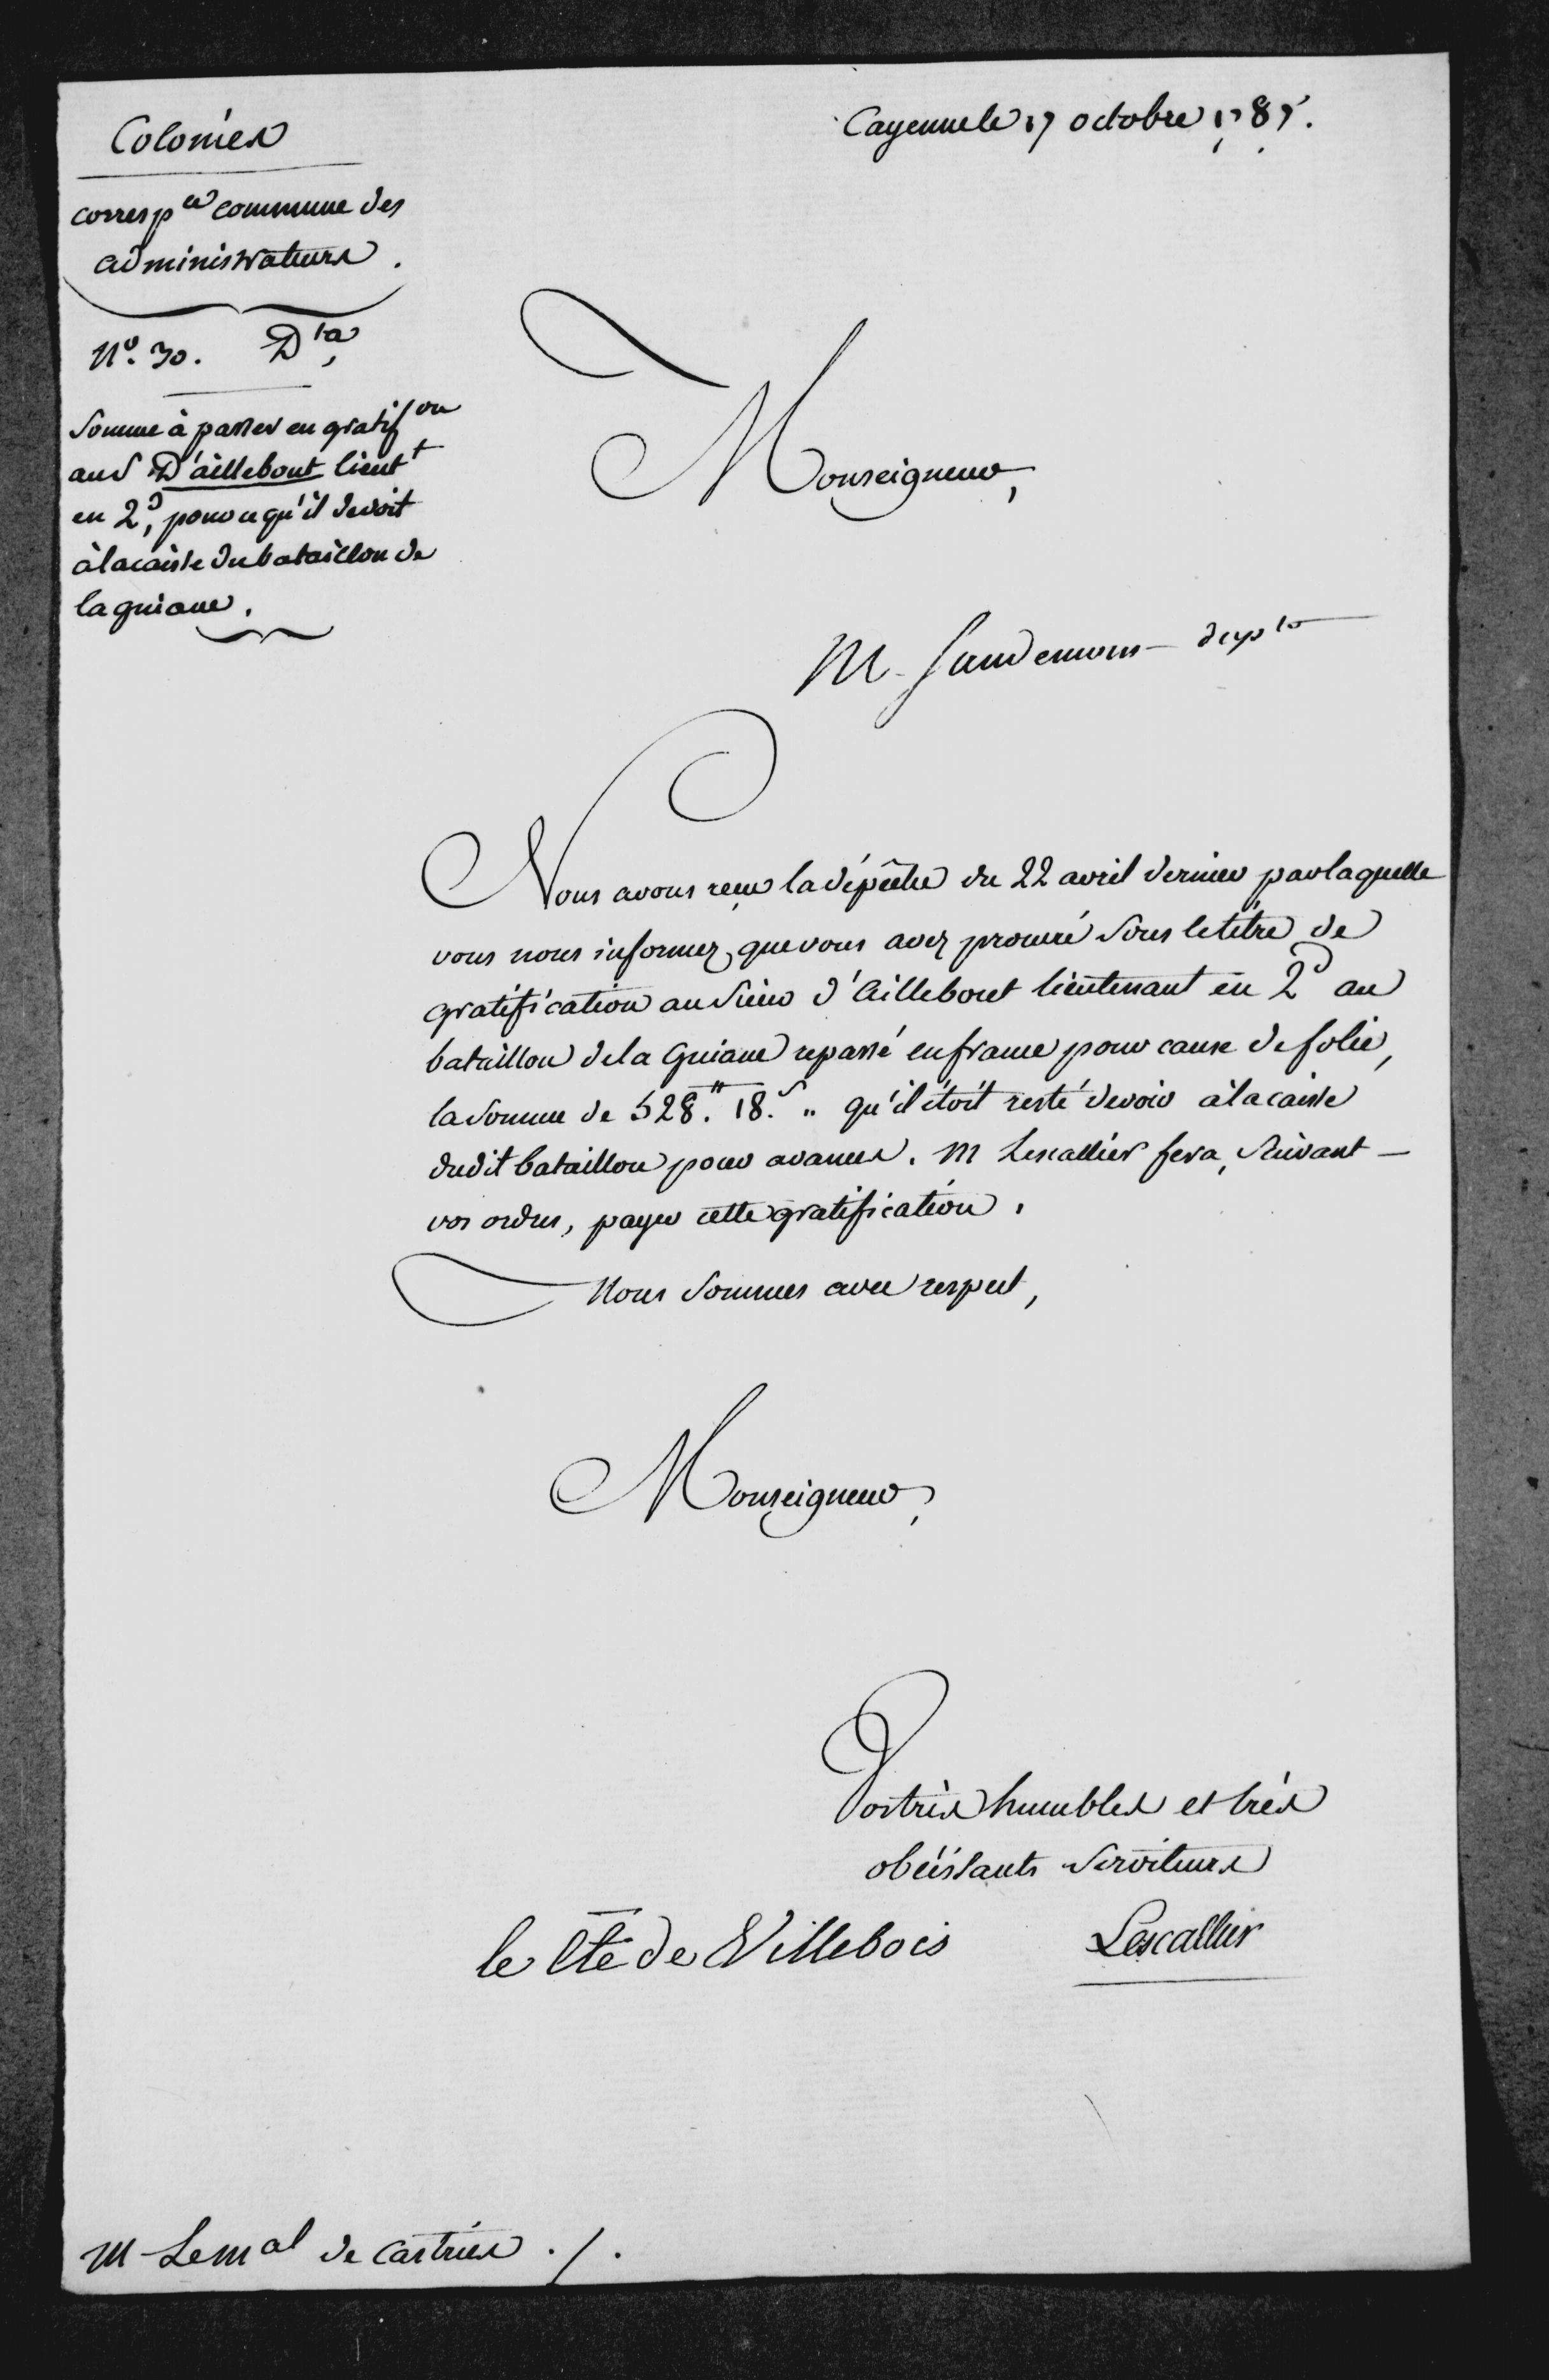 Colonies
corresp.ce commune des
administrateurs.
N.º 30. D.ta
Somme à passer en gratif.on
au S. D'aillebout lieut.t
en 2.d, pour ce qu'il devoit
à la caisse du bataillon de
la guiane.
Cayenne le 17 octobre 1785.
Monseigneur,
M.
Nous avons reçu la dépêche du 22 avril dernier par laquelle
vous nous informez que vous avez procuré sous le titre de
gratification au Sieur d'Aillebout lieutenant en 2.d au
bataillon de la Guiane repassé en france pour cause de folie,
la somme de 528.tt 18.s „ qu'il étoit resté devoir à la caisse
dudit bataillon pour avances. M Lescallier fera, suivant
vos ordres, payer cette gratification.
Nous sommes avec respect,
Monseigneur,
Vos très humbles et très
obéissants serviteurs
le Cte de Villebois Lescallier
M Le mal de castries ./.